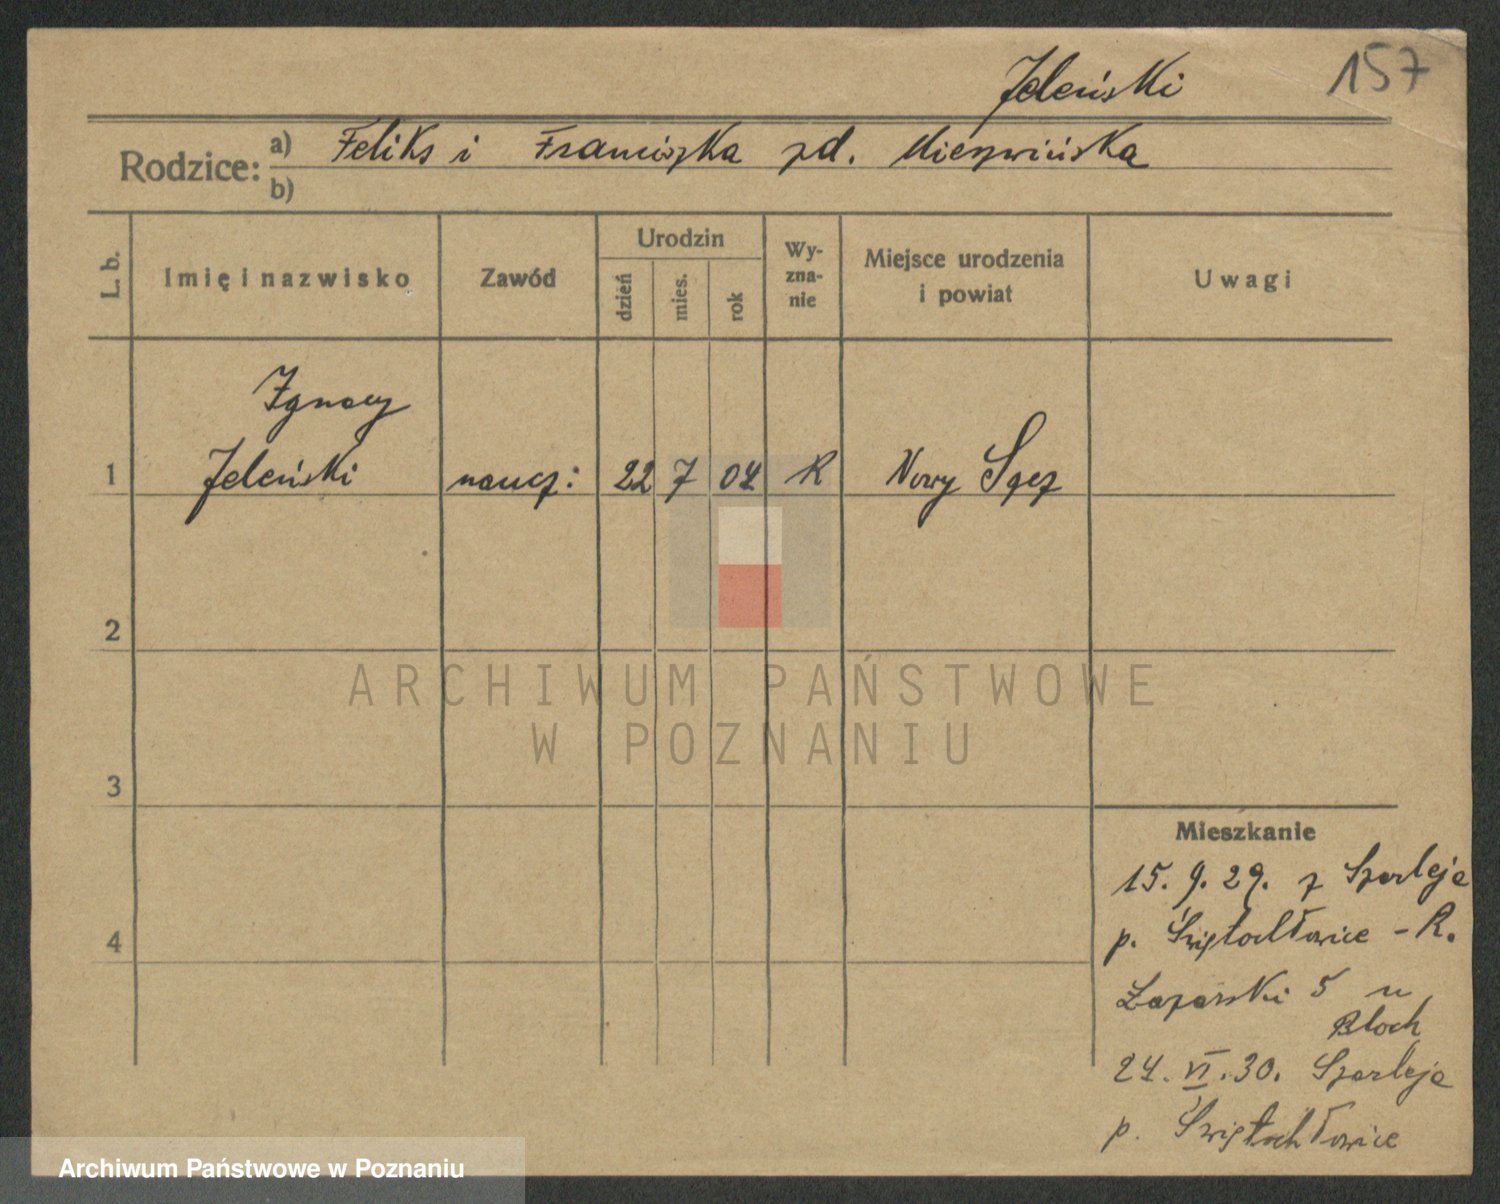 Jeleński
157
Rodzice:
a) Feliks i Franciszka zd. Mierzwińska
b)
L. b.
Imię i nazwisko
Zawód
Urodzin
dzień
mies.
rok
Wy-
zna-
nie
Miejsce urodzenia
i powiat
Uwagi
Ignacy
1 Jeleński naucz: 22 7 04 R Nowy Sącz
2
ARCHIWUM PAŃSTWOWE
W POZNANIU
3
Mieszkanie
15. 9. 29. z Szarleja
p. Świętochłowice - R.
Łazarski 5 u
Bloch
4
24. VI. 30. Szarleja
p. Świętochłowice
Archiwum Państwowe w Poznaniu